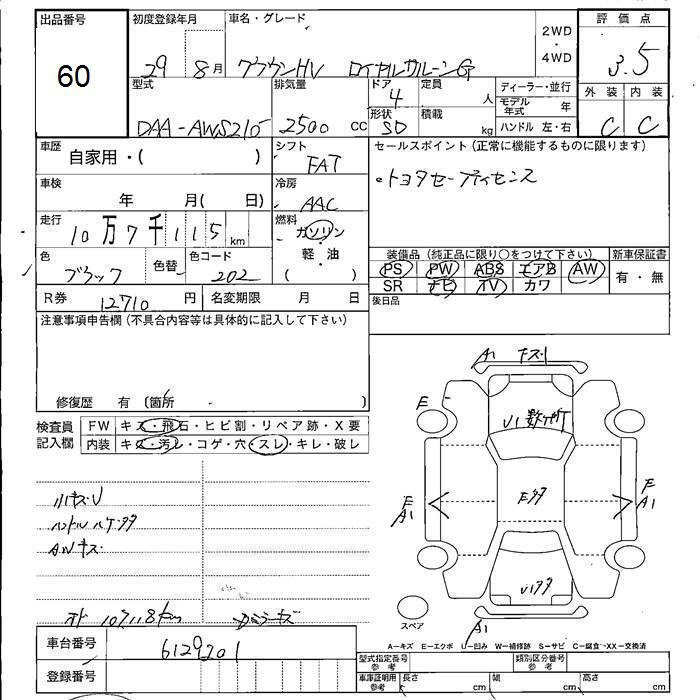 出品番号
60
初度登録年月
29 8月
車名・グレード
クラウンHV ロイヤルサルーンG
2WD
・
4WD
評価点
3.5
外装 内装
C C
型式
DAA-AWS210
排気量
2500 cc
ドア
4
形状
SD
定員
人
積載
kg
ディーラー・並行
モデル年式 年
ハンドル 左・右
車歴
自家用・( )
シフト
FAT
セールスポイント(正常に機能するものに限ります)
・トヨタセーフティセンス
車検
年 月( 日)
冷房
AAC
走行
10万7千115km
燃料
ガソリン
・
軽・油
( )
色
ブラック
色替
色コード
202
装備品(純正品に限り○をつけて下さい)
PS PW ABS エアB AW
SR ナビ TV カワ
新車保証書
有・無
R券 12710円
名変期限 月 日
後日品
注意事項申告欄(不具合内容等は具体的に記入して下さい)
修復歴 有 (箇所
検査員記入欄
FW キズ・飛石・ヒビ割・リペア跡・X要
内装 キズ・汚レ・コゲ・穴・スレ・キレ・破レ
小キズU
ハンドルハゲ・タタ
AWキズ
車台番号
6129201
登録番号
A1 キズ小
E
U1 数ヶ所
E
A1
Eタタ
E
A1
Uタタ
A1
スペア
A=キズ E=エクボ U=凹み W=補修跡 S=サビ C=腐食 XX=交換済
型式指定番号
参考
類別区分番号
参考
車庫証明用
参考
長さ cm
幅 cm
高さ cm